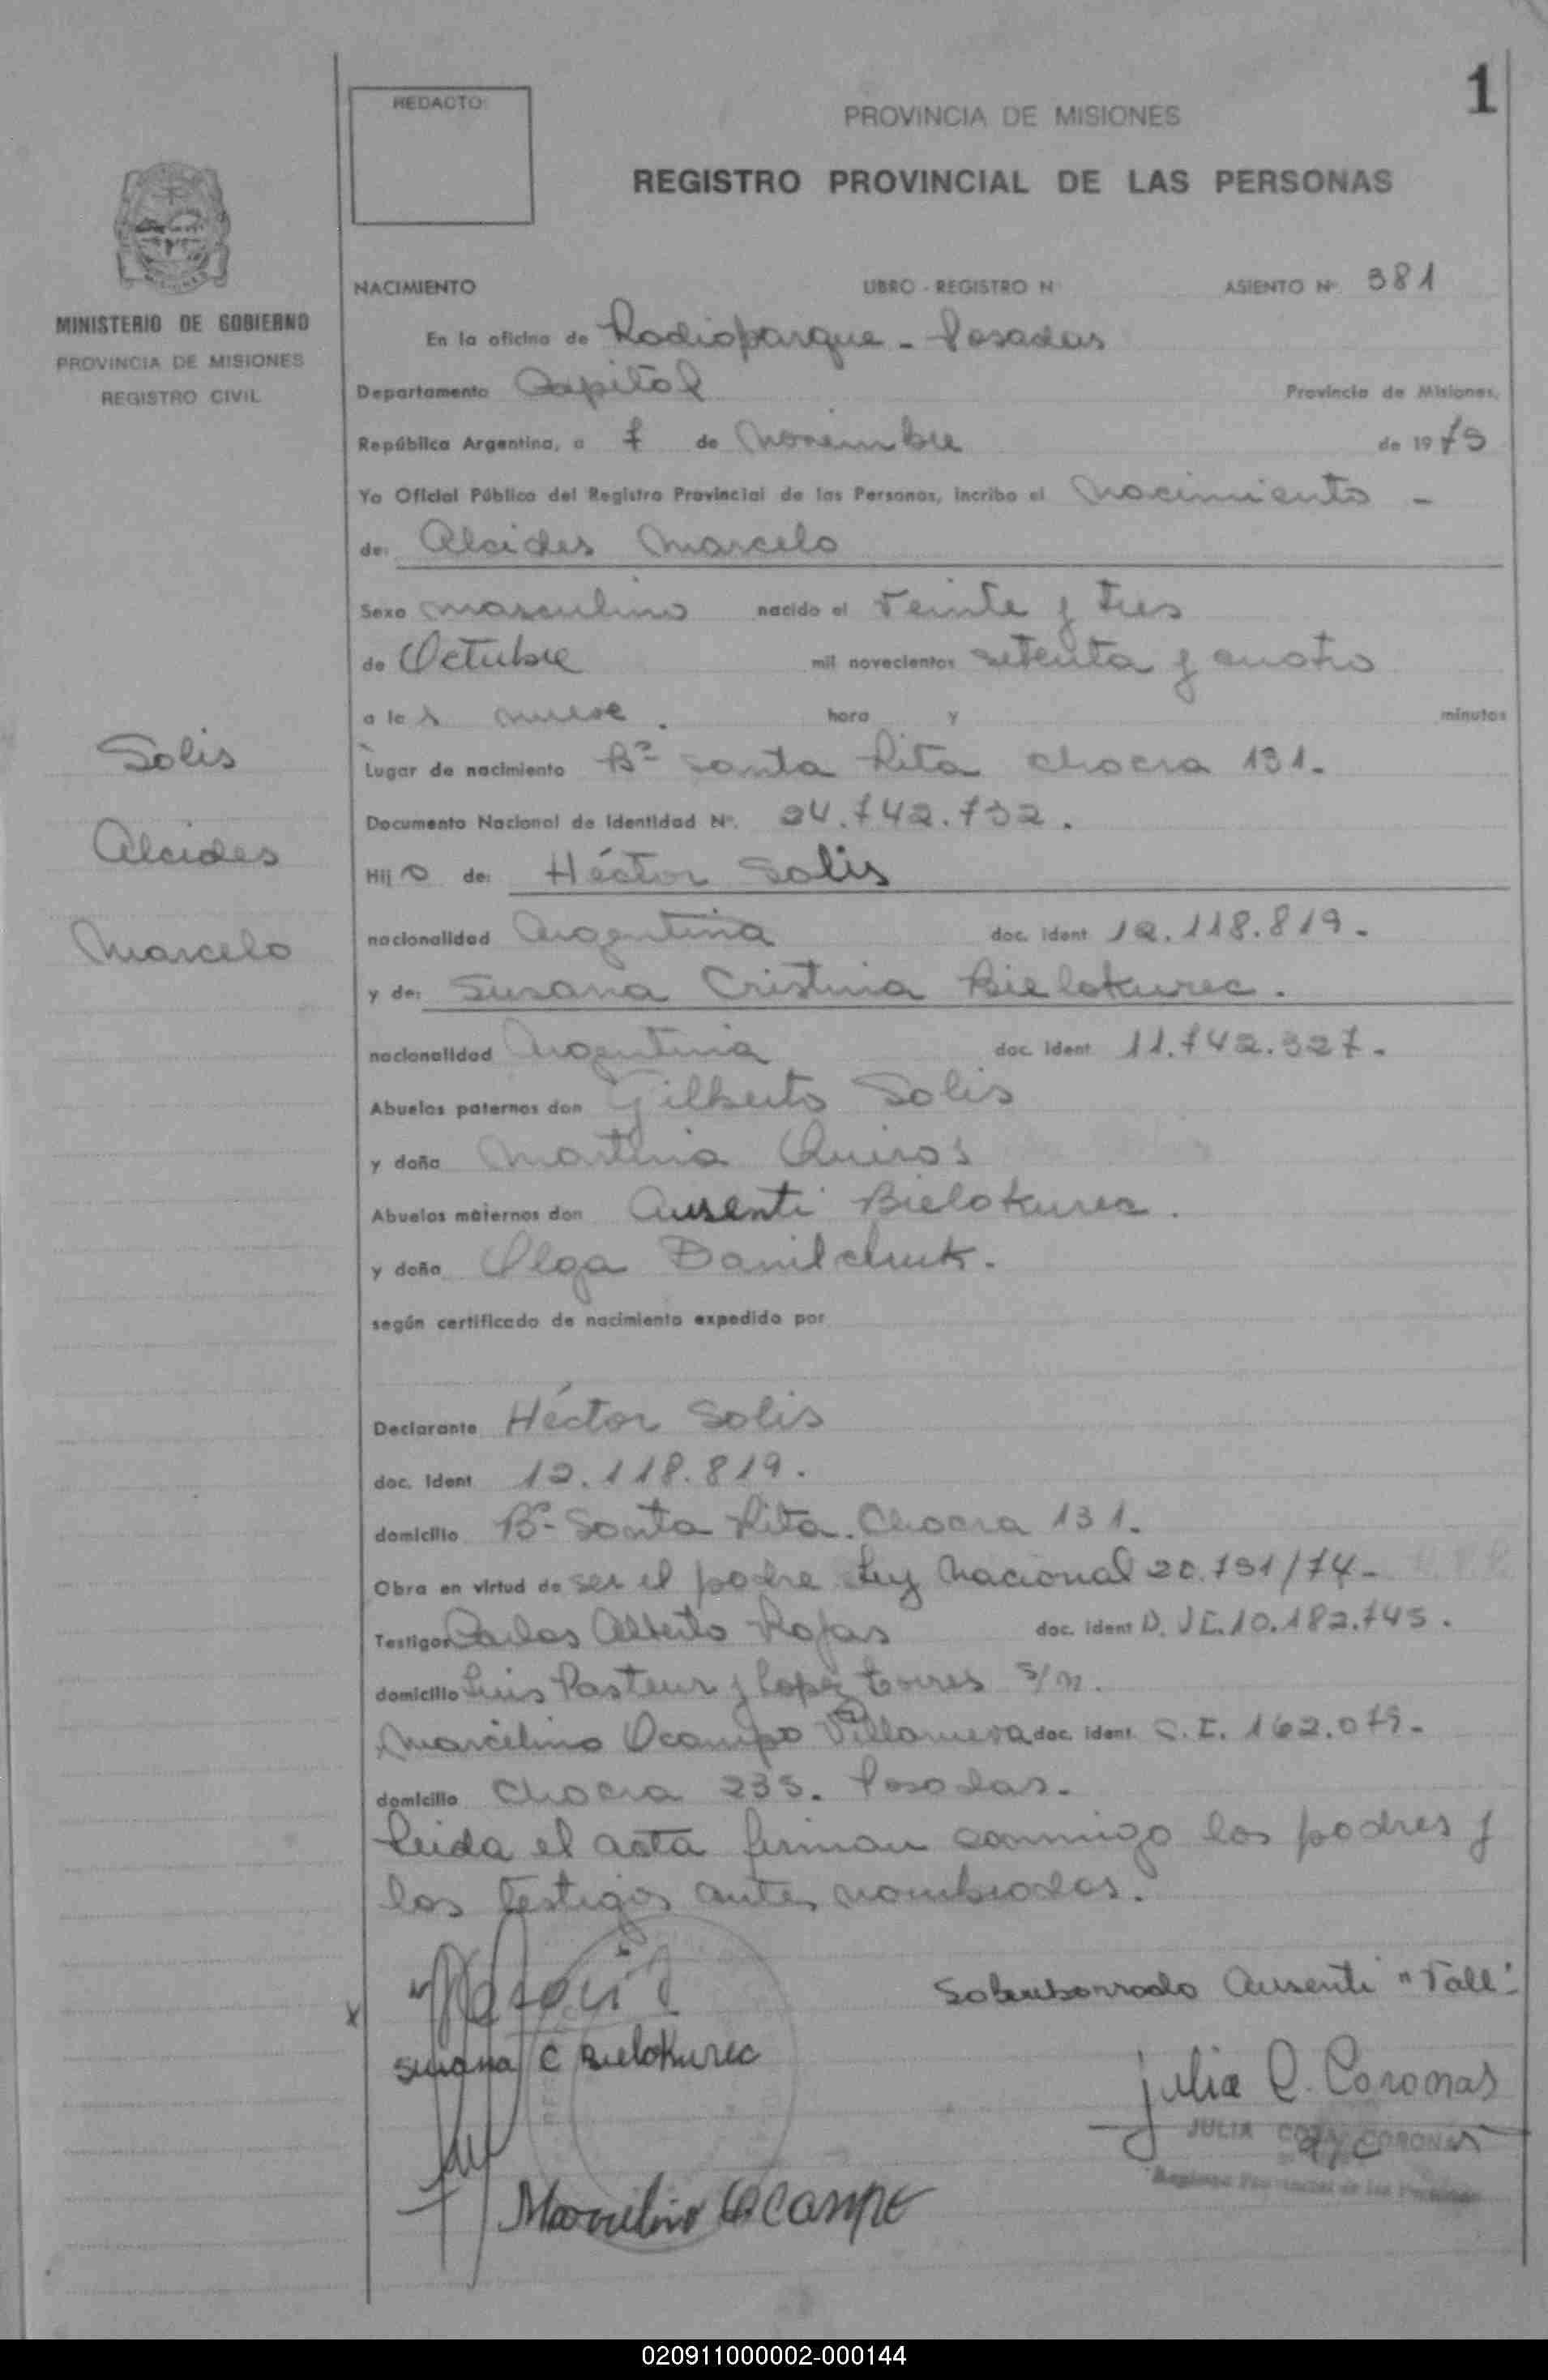 1
REDACTO:
PROVINCIA DE MISIONES
REGISTRO PROVINCIAL DE LAS PERSONAS
MINISTERIO DE GOBIERNO
PROVINCIA DE MISIONES
REGISTRO CIVIL
NACIMIENTO LIBRO - REGISTRO N ASIENTO Nº 381
En la oficina de Radioparque - Posadas
Departamento Capital Provincia de Misiones,
República Argentina, a 7 de Noviembre de 1975
Yo Oficial Público del Registro Provincial de las Personas, incribo el Nacimiento -
de: Alcides Marcelo
Sexo masculino nacido el Veinte y tres
de Octubre mil novecientos setenta y cuatro
a las nueve . hora y minutos
Lugar de nacimiento Bº Santa Rita chacra 131.
Documento Nacional de Identidad Nº. 24.742.732.
Hijo de: Héctor Solis
nacionalidad Argentina doc. ident 12.118.819.
y de: Susana Cristina Bielokurec.
nacionalidad Argentina doc. ident 11.742.327.
Abuelos paternos don Gilberto Solis
y doña Martina Quiros
Abuelos maternos don Ausenti Bielokurec.
y doña Olga Danilchuk.
según certificado de nacimiento expedido por
Declarante Héctor Solis
doc. ident 12.118.819.
domicilio Bº Santa Rita. Chacra 131.
Obra en virtud de ser el padre Ley Nacional 20.751/74-
Testigos Carlos Alberto Rojas doc. ident D.N.I. 10.182.745.
domicilio Luis Pasteur y Lopez torres s/n.
Marcelino Ocampo Villanueva doc. ident. C.I. 162.079-
domicilio Chacra 235. Posadas.
Leida el acta firman conmigo los padres y
los testigos antes nombrados.
Sobreborrado Ausenti "Vale"
Susana C Bielokurec
Julia C. Coronas
JULIA CORONAS
Marcelino Ocampo
Solis
Alcides
Marcelo
020911000002-000144